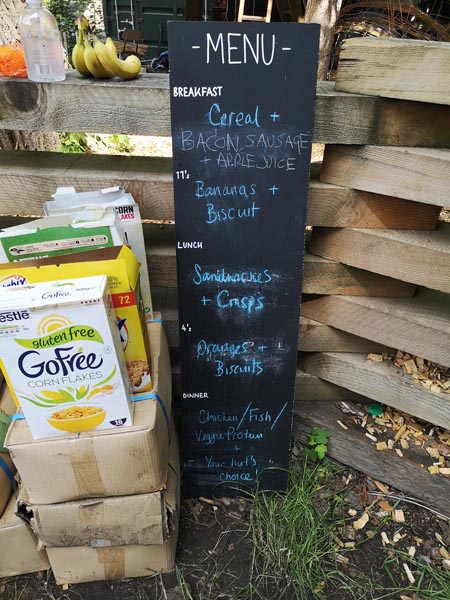 - MENU -
BREAKFAST
Cereal +
BACON, SAUSAGE
+ APPLE JUICE
11's
Bananas +
Biscuit
LUNCH
Sandwiches
+ Crisps
4's
Oranges +
Biscuits
DINNER
Chicken/Fish/
Veggie Protein
+
"Your hut's
choice!"
CORN
FLAKES
72
Nestle
GoFree
gluten free
GOFREE
CORN FLAKES